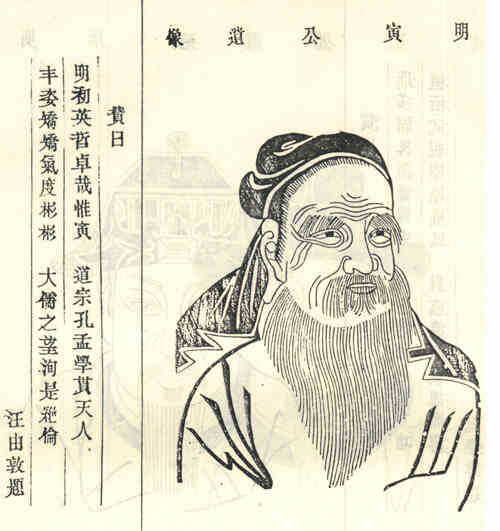 明寅公遺像
賛曰
明初英哲卓哉惟寅 道宗孔孟學貫天人
丰姿嬌嬌氣度彬彬 大儒之望洵是絶倫
汪由敦題